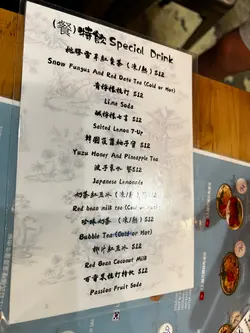 (餐)特飲 Special Drink
桃膠雪耳紅棗茶（凍/熱）$12
Snow Fungus And Red Date Tea (Cold or Hot)
青檸梳打 $12
Lime Soda
鹹檸七 $12
Salted Lemon 7-Up
韓國 柚子蜜 $12
Yuzu Honey And Pineapple Tea
波子汽水 $12
Japanese Lemonade
奶茶紅豆冰（凍/熱）$12
Red bean milk tea (Cold or Hot)
珍珠奶茶（凍/熱）$12
Bubble Tea (Cold or Hot)
椰汁紅豆冰 $12
Red Bean Coconut Milk
百香果梳打特飲 $12
Passion Fruit Soda